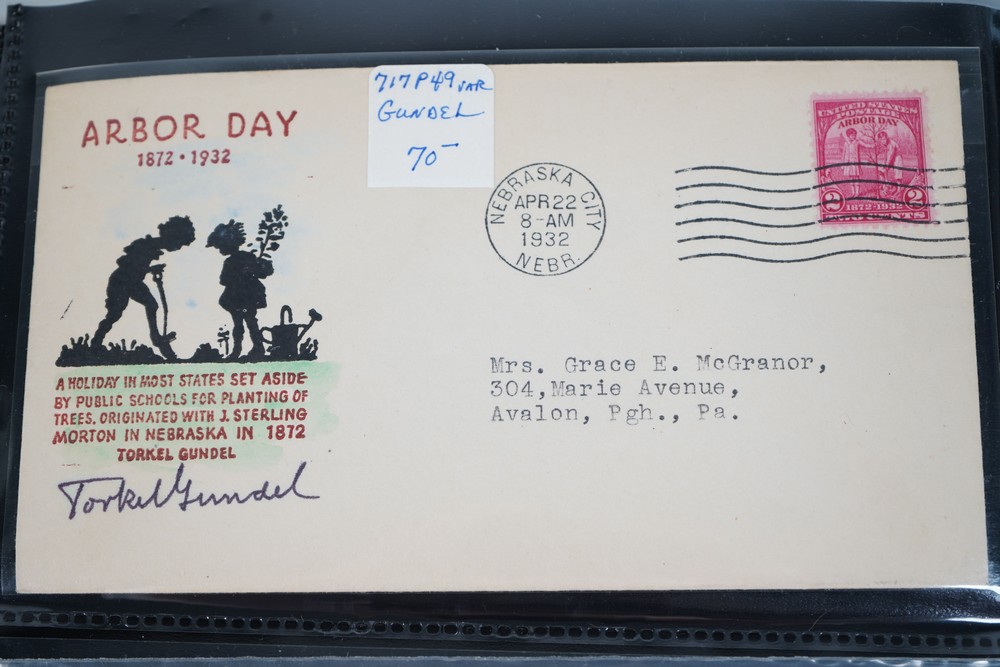 ARBOR DAY
1872 • 1932
717P49 VAR
GUNDEL
70—
NEBRASKA CITY
APR 22
8-AM
1932
NEBR.
UNITED STATES
POSTAGE
ARBOR DAY
2 1872-1932 2
TWO CENTS
Mrs. Grace E. McGranor,
304,Marie Avenue,
Avalon, Pgh., Pa.
A HOLIDAY IN MOST STATES SET ASIDE
BY PUBLIC SCHOOLS FOR PLANTING OF
TREES. ORIGINATED WITH J. STERLING
MORTON IN NEBRASKA IN 1872
TORKEL GUNDEL
Torkel Gundel